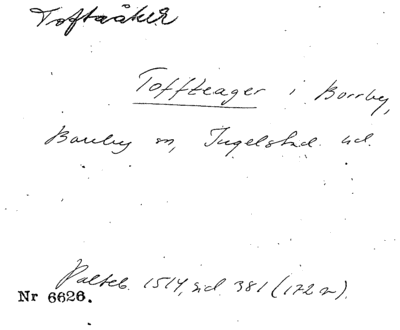 Toftaåker
Tofteager i Borrby,
Borrby sn, Ingelstad hd.
Palteb. 1514, sid 381 (172 r).
Nr 6626.